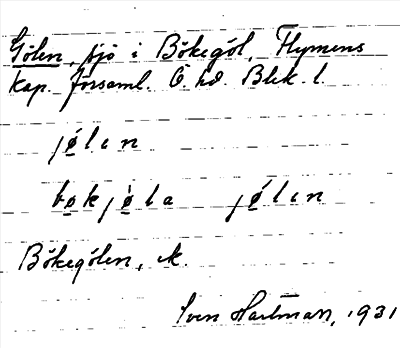 Gölen, sjö i Bökegöl, Flymens
Kap. församl. Ö. hd. Blek. l.
jø̀lɩn
bøkjø̀la jǿlɩn
Bökegölen, ik.
Sven Hartman, 1931